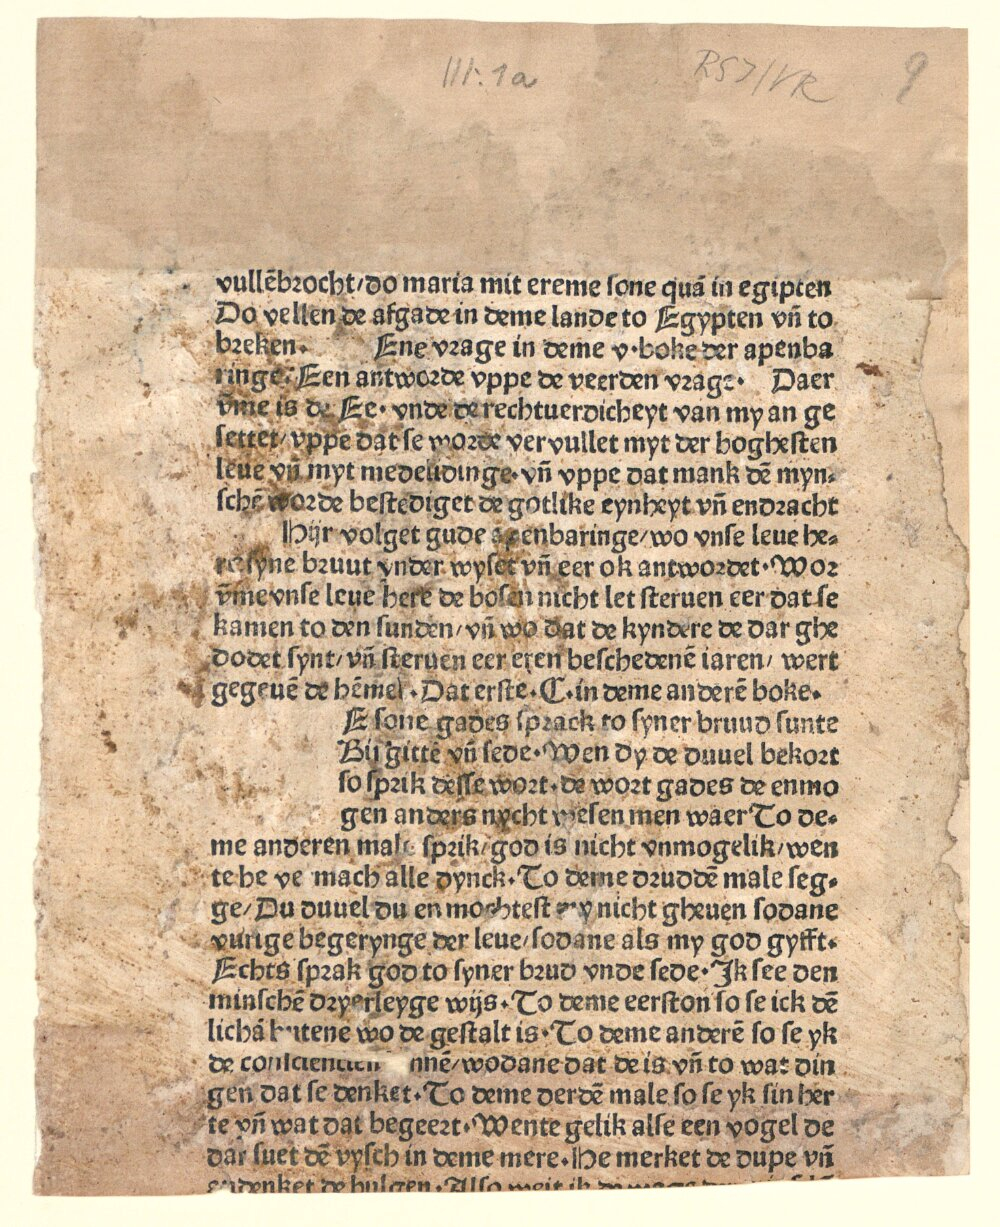 III. 1a
9
vullēbrocht/do maria mit ereme ſone quā in egipten
Do vellen de afgade in deme lande to Egypten vn̄ to
breken. Ene vrage in deme v. boke der apenba
ringe. Een antworde vppe de veerden vrage. Daer
v̄me is de Ee. vnde de rechtuerdicheyt van my an ge
ſettet/vppe dat ſe worde vervullet myt der hogheſten
leue vn̄ myt medelidinge. vn̄ vppe dat mank dē myn-
ſchē worde beſtediget de gotlike eynheyt vn̄ endracht
Hijr volget gude apenbaringe/wo vnſe leue he-
re ſyne bruut vnder wyſet vn̄ eer ok antwordet. Wor
v̄me vnſe leue here de boſen nicht let ſteruen eer dat ſe
kamen to den ſunden/vn̄ wo dat de kyndere de dar ghe
dodet ſynt/vn̄ ſteruen eer eren beſchedenē iaren/ wert
gegeuē de hēmel. Dat erſte. C. in deme anderē boke.
E ſone gades ſprack to ſyner bruud ſunte
Birgittē vn̄ ſede. Wen dy de duuel bekort
ſo ſprik deſſe wort. de wort gades de enmo
gen anders nycht weſen men waer To de-
me anderen male ſprik/god is nicht vnmogelik/wen
te he ve mach alle dynck. To deme druddē male ſeg-
ge/Du duuel du en mochteſt my nicht gheuen ſodane
vurige begerynge der leue/ſodane als my god gyfft.
Echts ſprak god to ſyner brud vnde ſede. Ik ſee den
minſchē dryerleyge wijs. To deme eerſton ſo ſe ick dē
lichā butene wo de geſtalt is. To deme anderē ſo ſe yk
de conſciencien nnē/wodane dat de is vn̄ to wat din
gen dat ſe denket. To deme derdē male ſo ſe yk ſin her
te vn̄ wat dat begeert. Wente gelik alſe een vogel de
dar ſuet dē vyſch in deme mere. He merket de dupe vn̄
de bulgen. Alſo